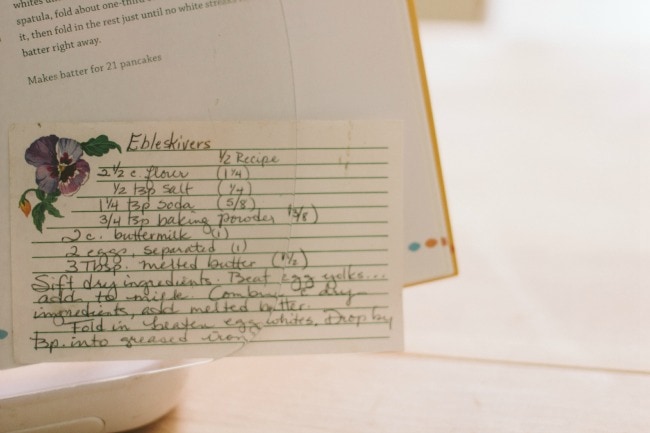 whites un
spatula, fold about one-third
it, then fold in the rest just until no white streaks
batter right away.
Makes batter for 21 pancakes
Ebleskivers
1/2 Recipe
2 1/2 c. flour (1 1/4)
1/2 tsp salt (1/4)
1 1/4 tsp soda (5/8)
3/4 tsp baking powder (3/8)
2 c. buttermilk (1)
2 eggs, separated (1)
3 Tbsp. melted butter (1 1/2)
Sift dry ingredients. Beat egg yolks...
add to milk. Combine c dry
ingredients, add melted butter.
Fold in beaten egg whites. Drop by
Tsp. into greased iron.